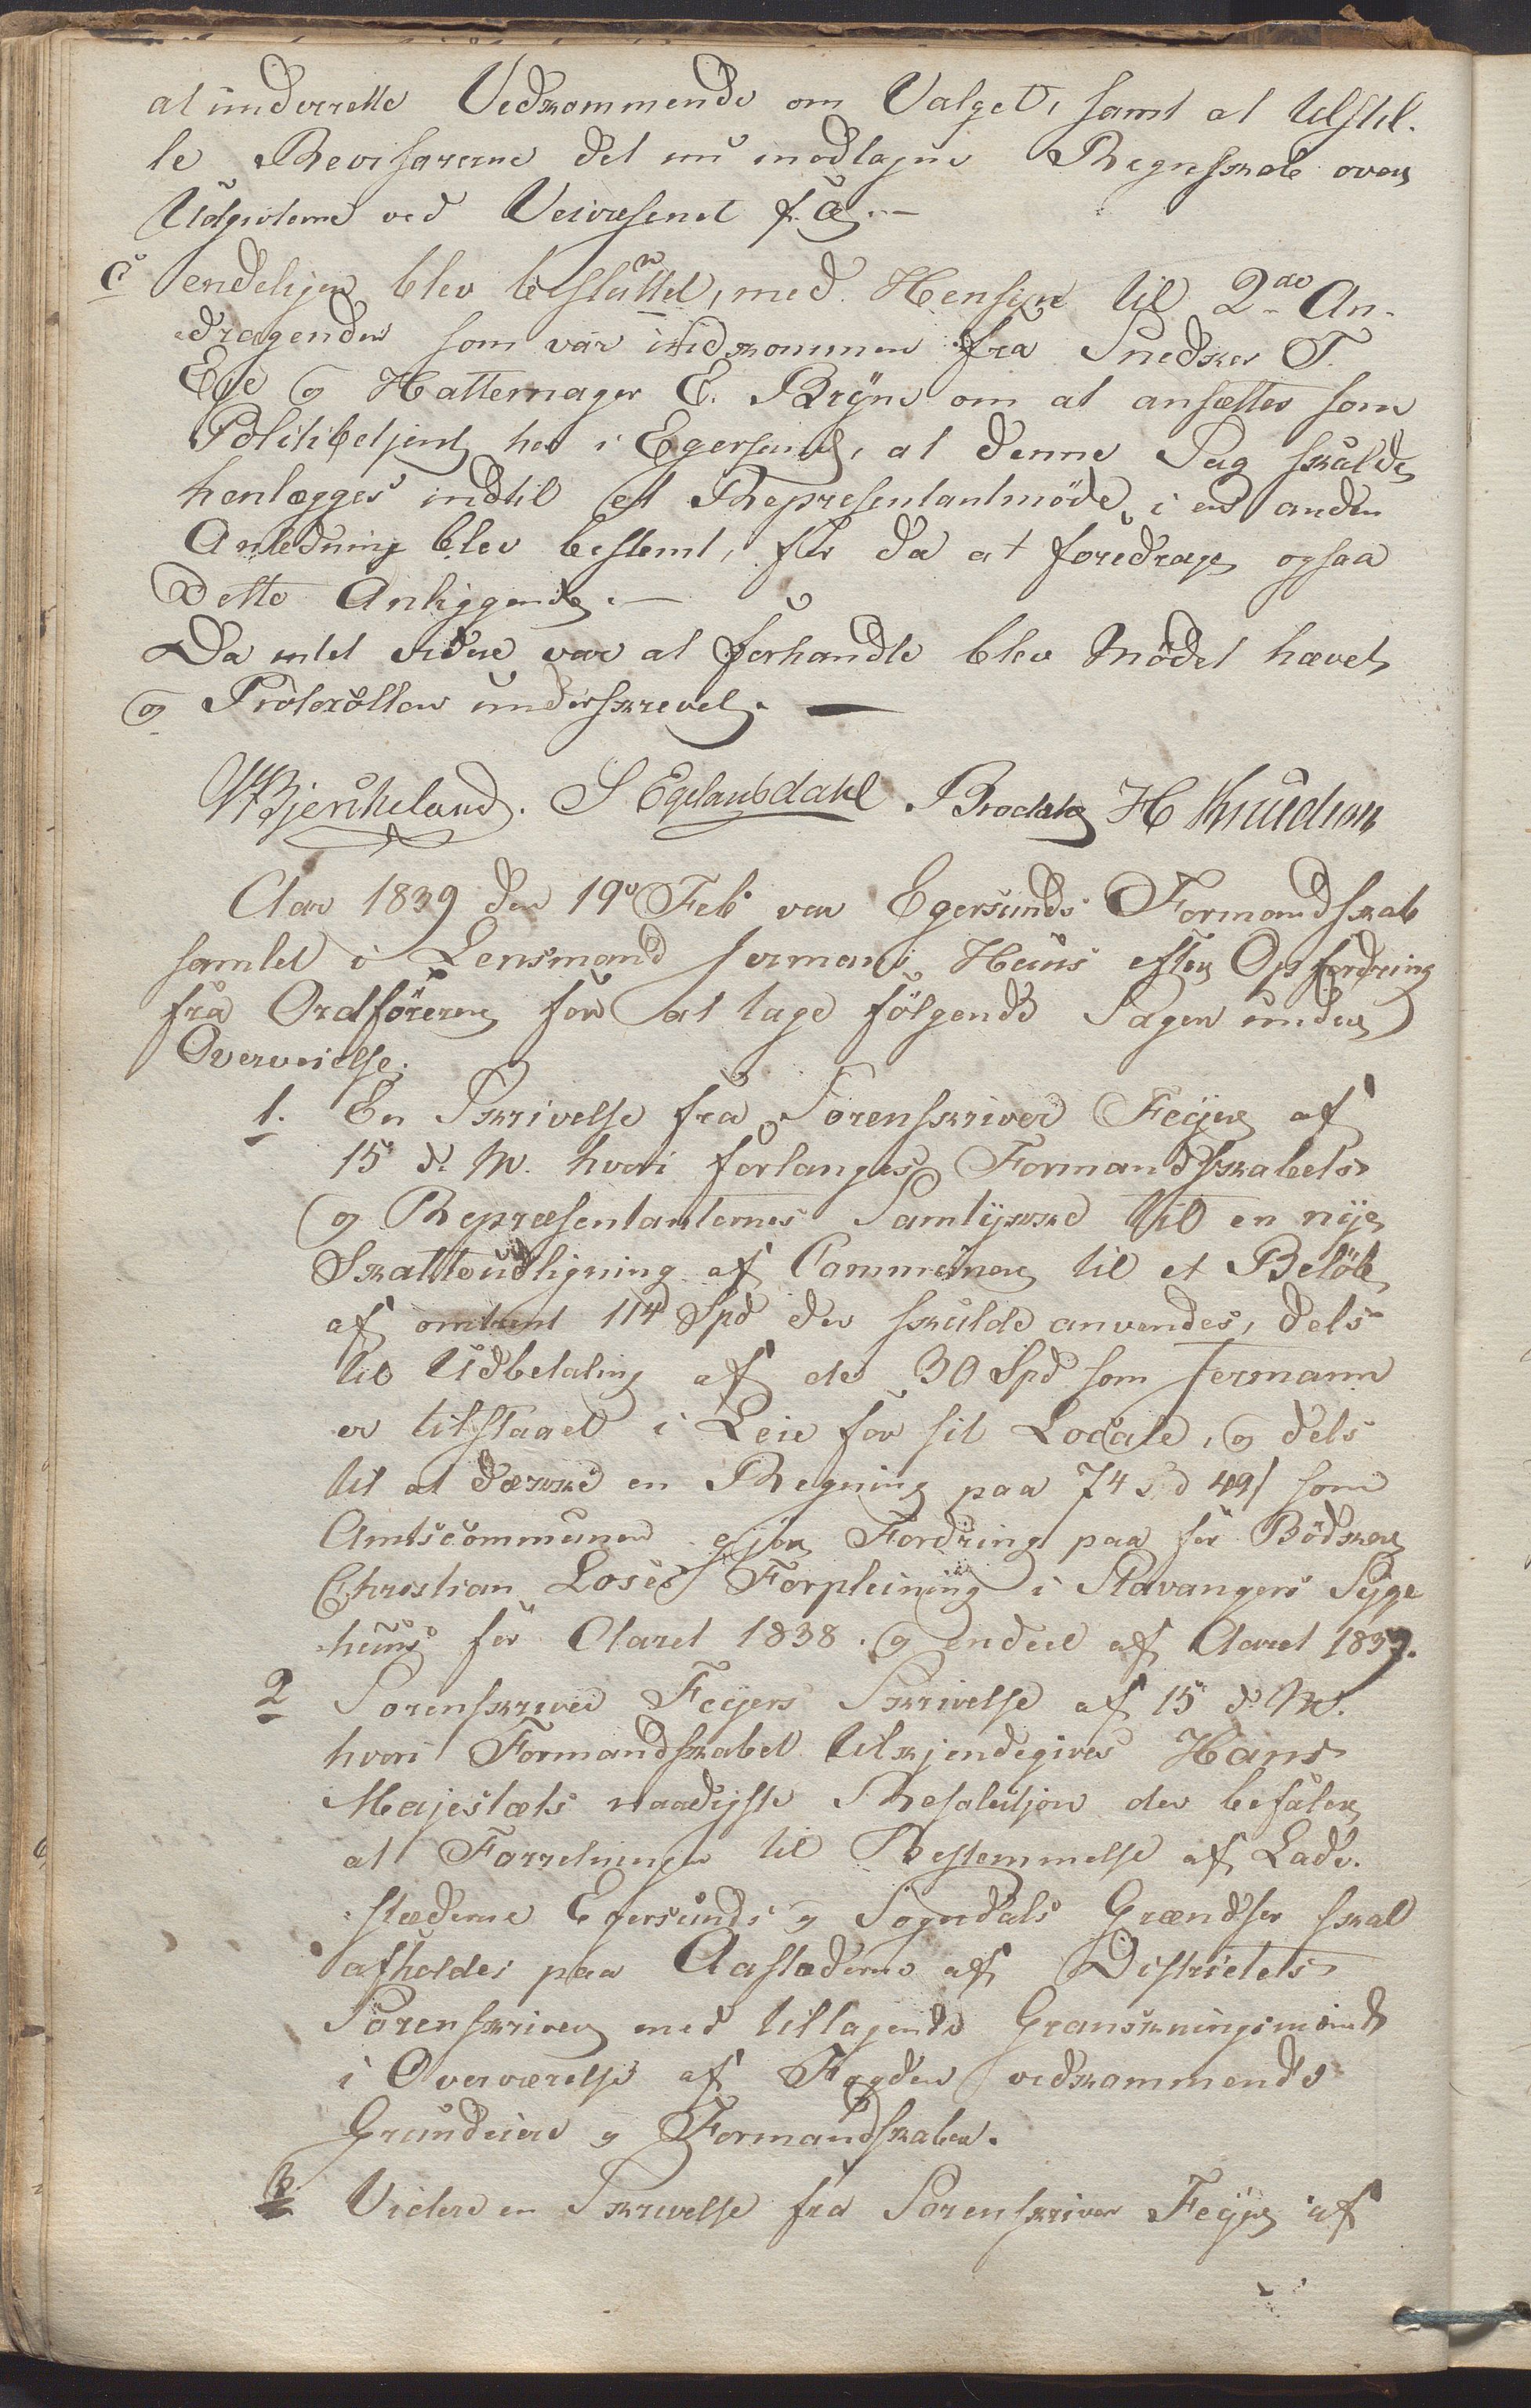 at underrette Vedkommende om Valget, samt at tilstil-
le Revisorerne det nu modtagne Regnskab over
Udgivterne ved Veivæsenet f. A.
C endeligen blev besluttet, med Hensin til 2de An-
dragender som var indkommen fra Snedker T.
Eie og Hattemager E. Bryne om at ansættes som
Politibetjent her i Egersund, at denne Sag skulde
henlægges indtil et Representantmöde i en anden
Anledning blev bestemt, for da at foredrage ogsaa
dette Anliggende.
Da intet videre var at forhandle blev Mödet hævet
og Protokollen underskrevet.
Bjerkeland. S Egelandsdahl Brodahl H Knudson
Aar 1839 den 19de Feb var Egersunds Formandskab
samlet i Lensmand Jermans Huus efter Opfordring
fra Ordföreren for at tage fölgende Sager under
Overveielse.
1. En Skrivelse fra Sorenskriver Feyer af
15 d. M. hvori forlanges Formandskabets
og Repræsentanternes Samtykke til en nye
Skatteudligning af Communen til et Belöb
af omtrent 114 Spd der skulde anvendes, dels
til Udbetaling af de 30 Spd som Jermann
er tilstaaet i Leie for sit Locale, og dels
til at dække en Regning paa 74 Spd 49 s som
Amtscommunen gjör Fordring paa for Bödker
Christian Loses Forpleining i Stavangers Syge
huus for Aaret 1838. og endeel af Aaret 1837.
2 Sorenskriver Feyers Skrivelse af 15 d. M.
hvori Formandskabet tilkjendegives Hans
Majestæts naadigste Resolutjon der befaler
at Forretningen til Bestemmelse af Lade-
stæderne Egersunds og Sogndals Grændser skal
afholdes paa Aastæderne af Districtets
Sorenskriver med tiltagende Granskningsmænd
i Overværelse af Fogden vedkommende
Grundeiere og Formandskaber.
3 Videre en Skrivelse fra Sorenskriver Feyer af